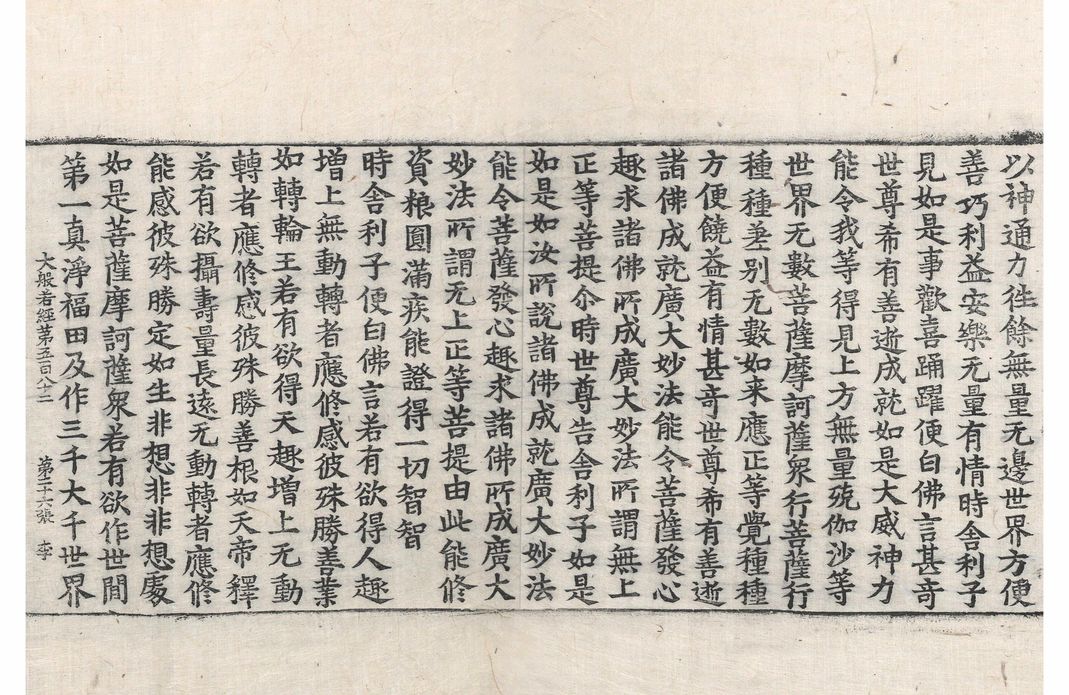 以神通力往餘無量无邊世界方便
善巧利益安樂无量有情時舍利子
見如是事歡喜踊躍便白佛言甚奇
世尊希有善逝成就如是大威神力
能令我等得見上方無量殑伽沙等
世界无數菩薩摩訶薩衆行菩薩行
種種差别无數如来應正等覺種種
方便饒益有情甚奇世尊希有善逝
諸佛成就廣大妙法能令菩薩發心
趣求諸佛所成廣大妙法所謂無上
正等菩提尒時世尊告舍利子如是
如是如汝所說諸佛成就廣大妙法
能令菩薩發心趣求諸佛所成廣大
妙法所謂无上正等菩提由此能修
資粮圓滿疾能證得一切智智
時舍利子便白佛言若有欲得人趣
增上無動轉者應修感彼殊勝善業
如轉輪王若有欲得天趣增上无動
轉者應修感彼殊勝善根如天帝釋
若有欲攝壽量長遠无動轉者應修
能感彼殊勝定如生非想非非想處
如是菩薩摩訶薩衆若有欲作世間
第一真淨福田及作三千大千世界
大般若經第五百八十二 第二十六張 李